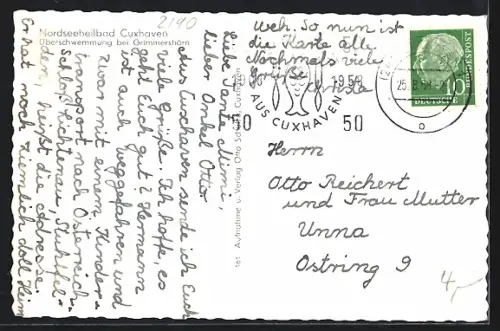 2190
Nordseeheilbad Cuxhaven
Überschwemmung bei Grimmershörn
Liebe Tante Mimi,
lieber Onkel Otto
aus Cuxhaven sende ich Euch
viele Grüße. Ich hoffe, es
geht Euch gut? Hermann
ist auch weggefahren und
zwar mit einem Kinder-
transport nach Österreich
Schloß Lichtenau Stuhlfel-
den, heißt die Adresse.
Er hat noch ziemlich doll Heim
weh. So nun ist
die Karte alle
Nochmals viele
Grüße
Christa
161 Aufnahme u. Verlag Otto Cuxhaven
1958
AUS CUXHAVEN
50
50
25.8.58
DEUTSCHE BUNDESPOST
10
Herrn
Otto Reichert
und Frau Mutter
Unna
Ostring 9
4,-